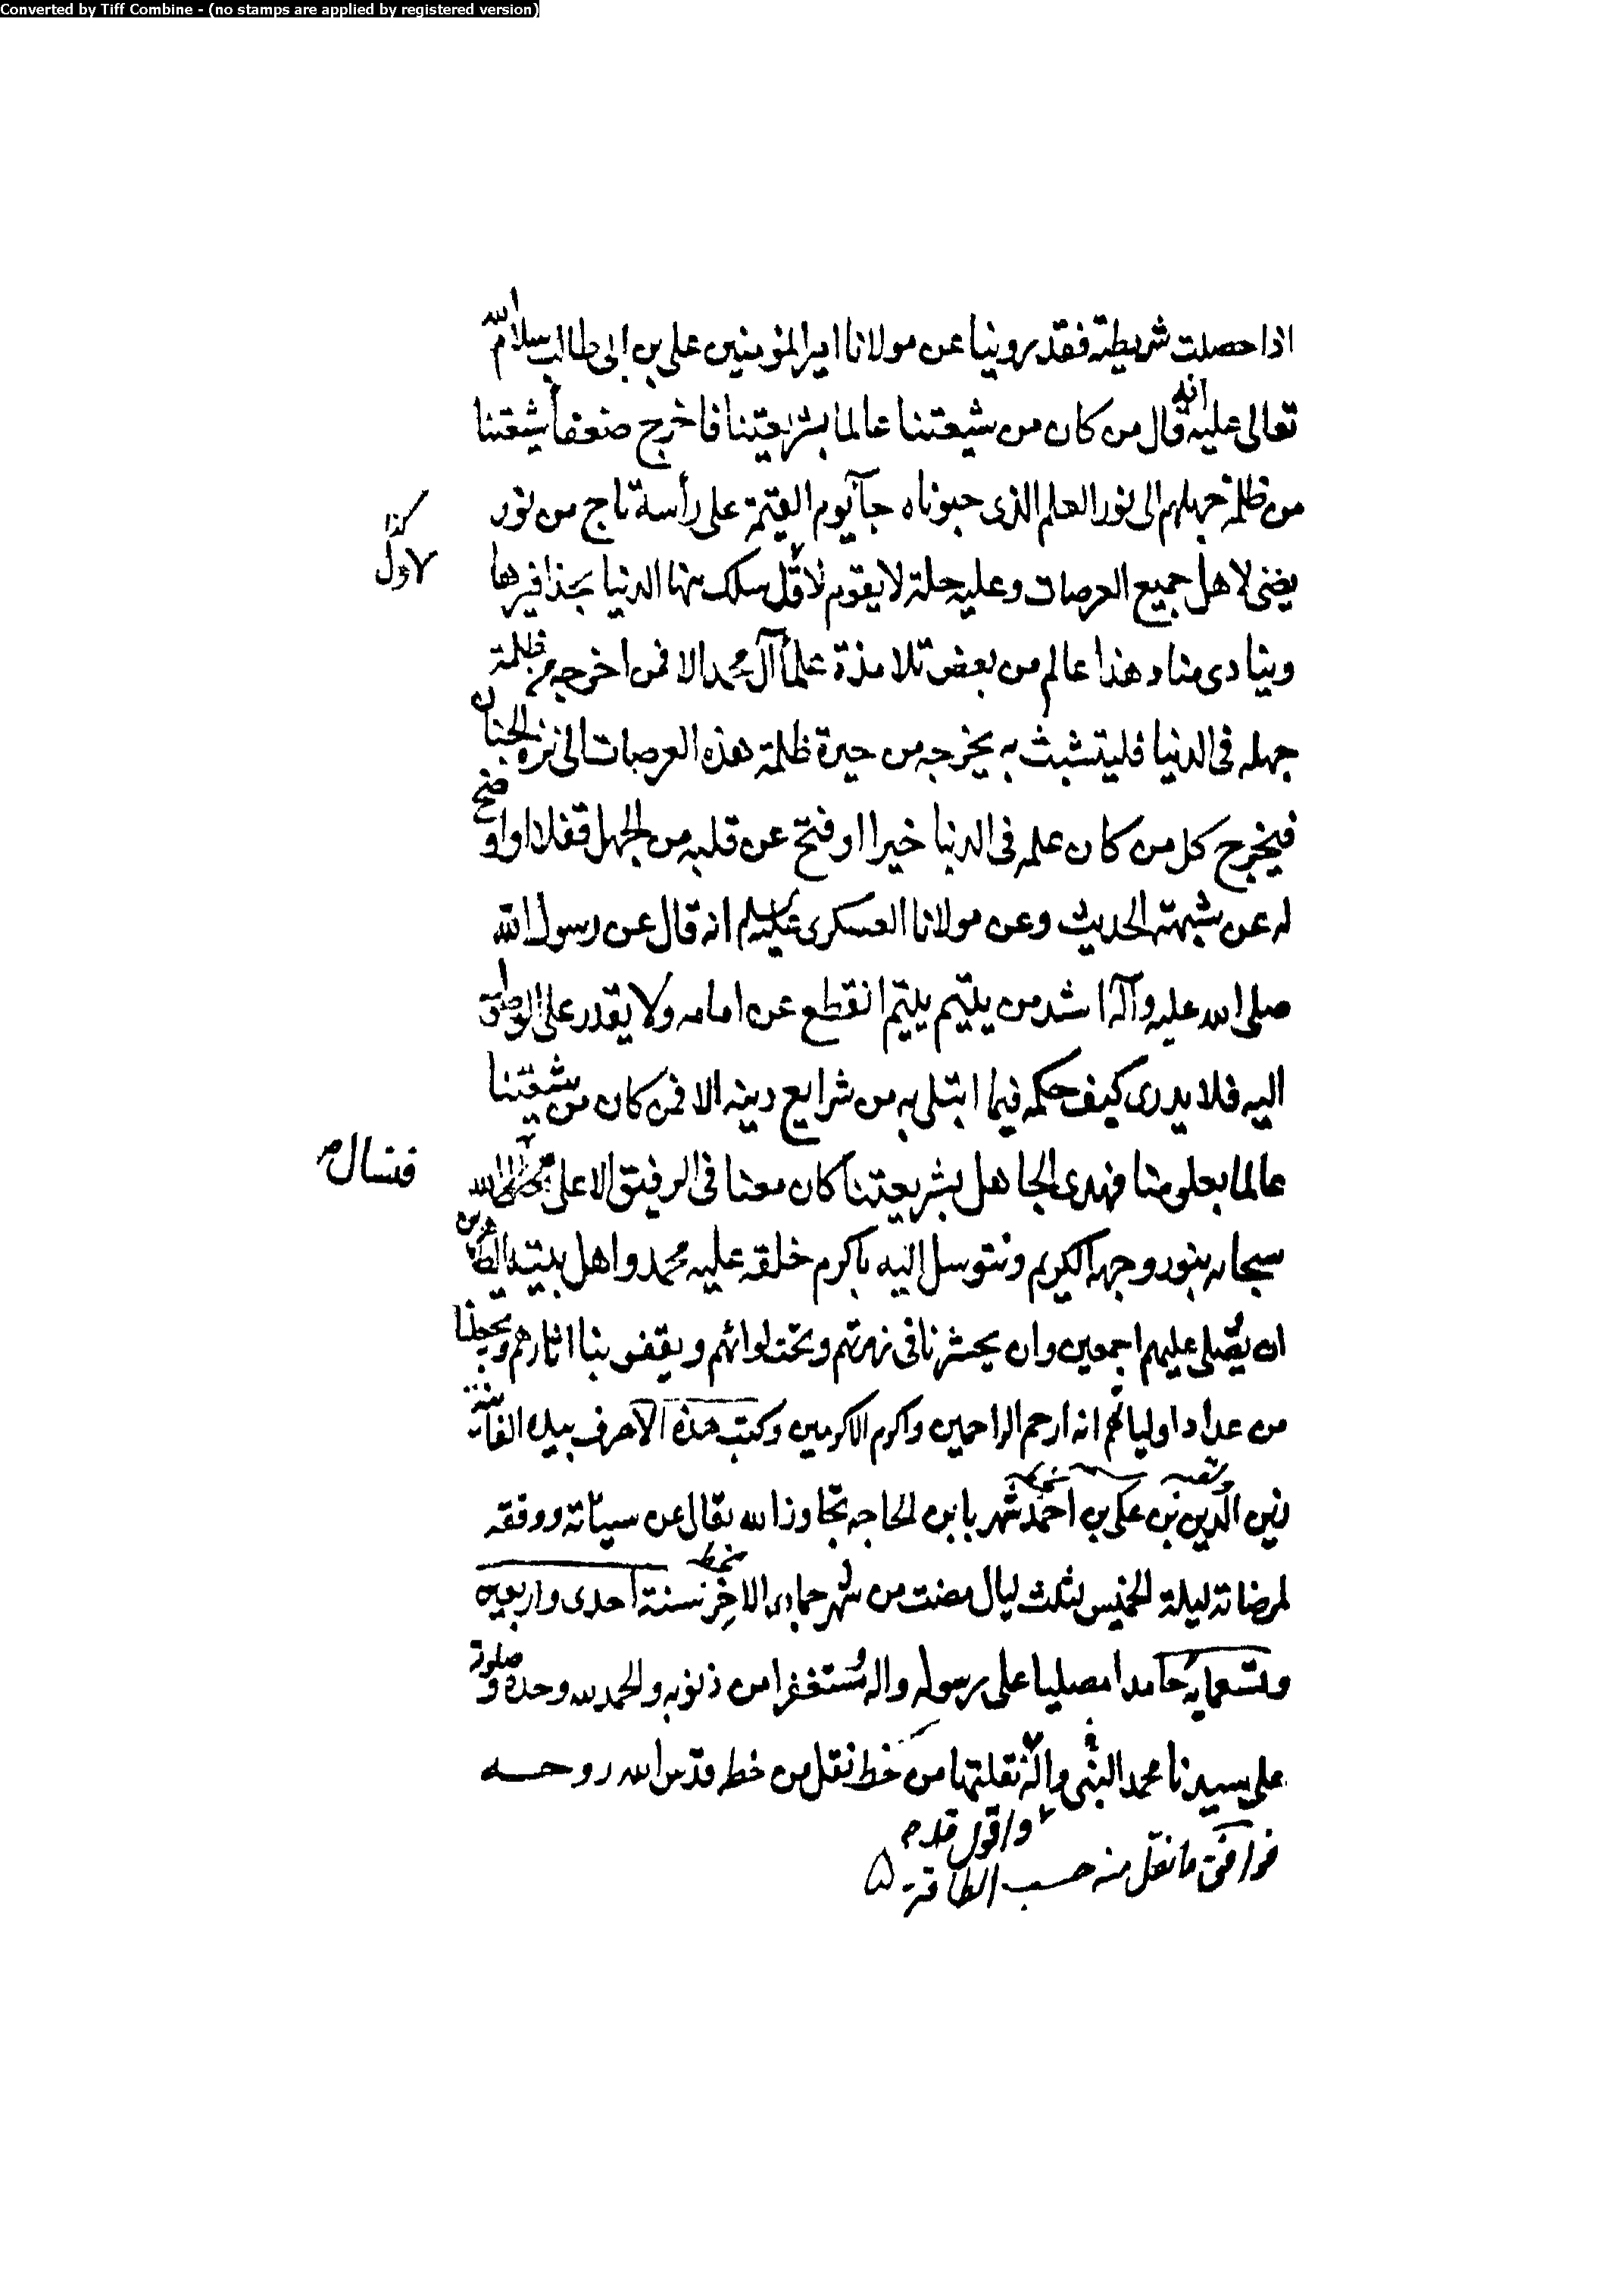 Converted by Tiff Combine - (no stamps are applied by registered version)
اذا حصلت شريطته فقد روينا عن مولانا امير المؤمنين على بن ابى طالب سلام الله
تعالى عليه انه قال من كان من شيعتنا عالما بشريعتنا فاخرج ضعفاء شيعتنا
من ظلمة جهلهم الى نور العلم الذى حبوناه جآء يوم القيمة على رأسه تاج من نور
يضئ لاهل جميع العرصات وعليه حلة لا يقوم لاقل سلك منها الدنيا بحذافيرها
كذا
وينادى مناد هذا عالم من بعض تلامذة علماء آل محمد الا فمن اخرجه من ظلمة
جهله فى الدنيا فليتشبث به يخرجه من حيرة ظلمة هذه العرصات الى نزه الجنان
فيخرج كل من كان علمه فى الدنيا خيرا او فتح عن قلبه من الجهل قفلا او اوضح
له عن شبهته الحديث وعن مولانا العسكرى انه قال عن رسول الله
صلى الله عليه وآله اشد من يتيم يتيم انقطع عن امامه ولا يقدر على الوصول
اليه فلا يدرى كيف حكمه فيما ابتلى به من شرايع دينه الا فمن كان من شيعتنا
عالما بعلومنا فهدى الجاهل بشريعتنا كان معنا فى الرفيق الاعلى الله
فنسال
سبحانه بنور وجهه الكريم ونتوسل اليه باكرم خلقه عليه محمد واهل بيته الطاهرين
ان يصلى عليهم اجمعين وان يحشرنا فى زمرتهم وتحت لوائهم ويقفو بنا اثارهم ويجعلنا
من عداد اوليائهم انه ارحم الراحمين واكرم الاكرمين وكتب هذه الاحرف بيده الفانية
زين الدين بن على بن احمد شهر بابن الحاجه تجاوز الله تعالى عن سيئاته ووفقه
لمرضاته ليلة الخميس لثلث ليال مضت من شهر جمادى الاخر سنة احدى واربعين
وتسعمايه حامدا مصليا على رسوله واله مستغفرا من ذنوبه والحمد لله وحده وصلوته
على سيدنا محمد النبى واله نقلتها من خط نقل من خط قدس الله روحه
واقول قدم
فوافق ما نقل منه حسب الطاقة